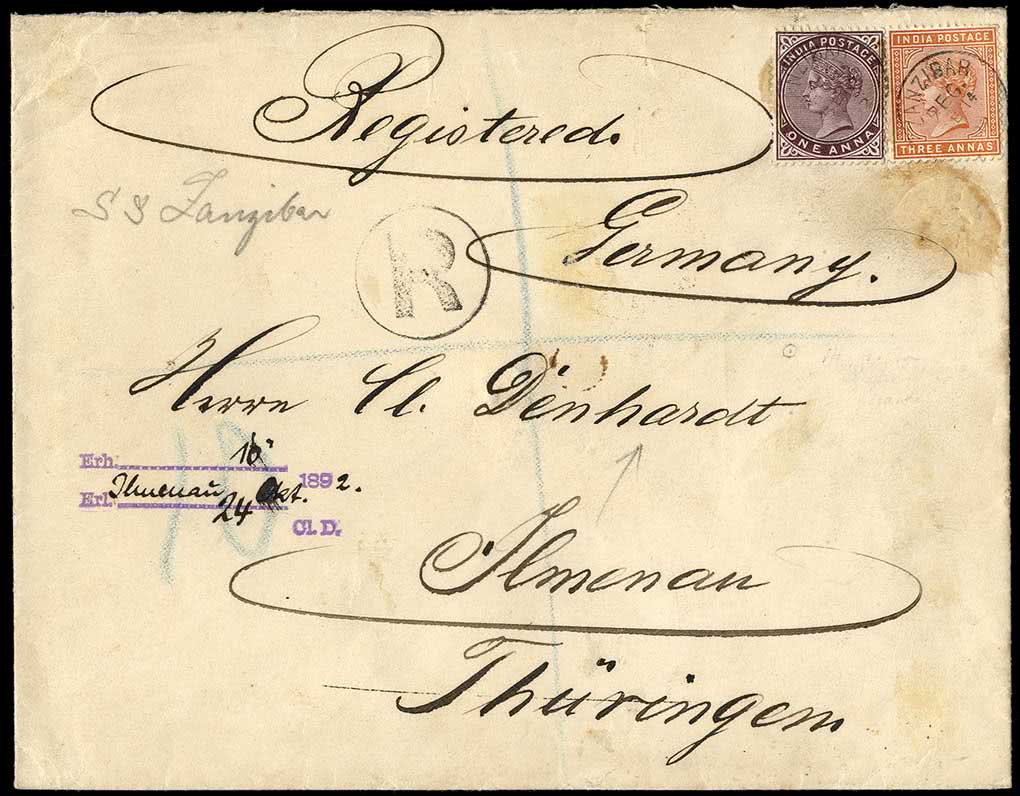 Registered.
INDIA POSTAGE
ONE ANNA
INDIA POSTAGE
THREE ANNAS
ZANZIBAR
S S Zanzibar
R
Germany.
Herrn Cl. Denhardt
10
Erh. 16
Erl. Ilmenau 24 Okt. 1892.
Cl. D.
Ilmenau
Thüringen.